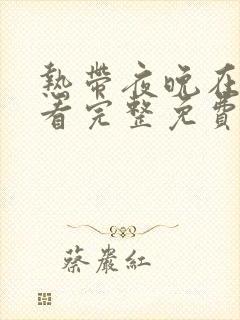 熱帶夜晚在
看完整免費
蔡嚴紅